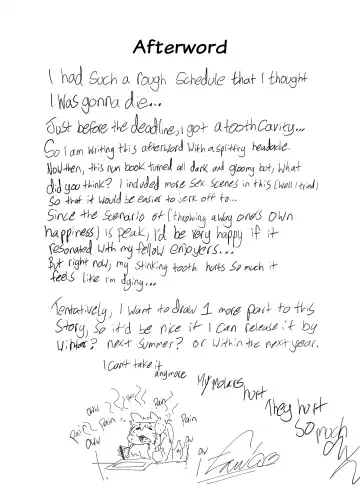 Afterword
I had such a rough schedule that I thought
I was gonna die...
Just before the deadline, I got a tooth cavity...
So I am writing this afterword with a splittiry headache.
Now then, this nun book turned all dark and gloomy but, what
did you think? I included more sex scenes in this (well I tried)
so that it would be easier to jerk off to...
Since the scenario of (throwing away one's own
happiness) is peak, I'd be very happy if it
resonated with my fellow enjoyers...
But right now, my stinking tooth hurts so much it
feels like I'm dying...
Tentatively, I want to draw 1 more part to this
story, so it'd be nice if I can release it by
winter? next summer? or within the next year.
I can't take it
anymore
My molars
hurt
They hurt
so much
oww
Pain
Pain
Pain
oww
Pain
ow